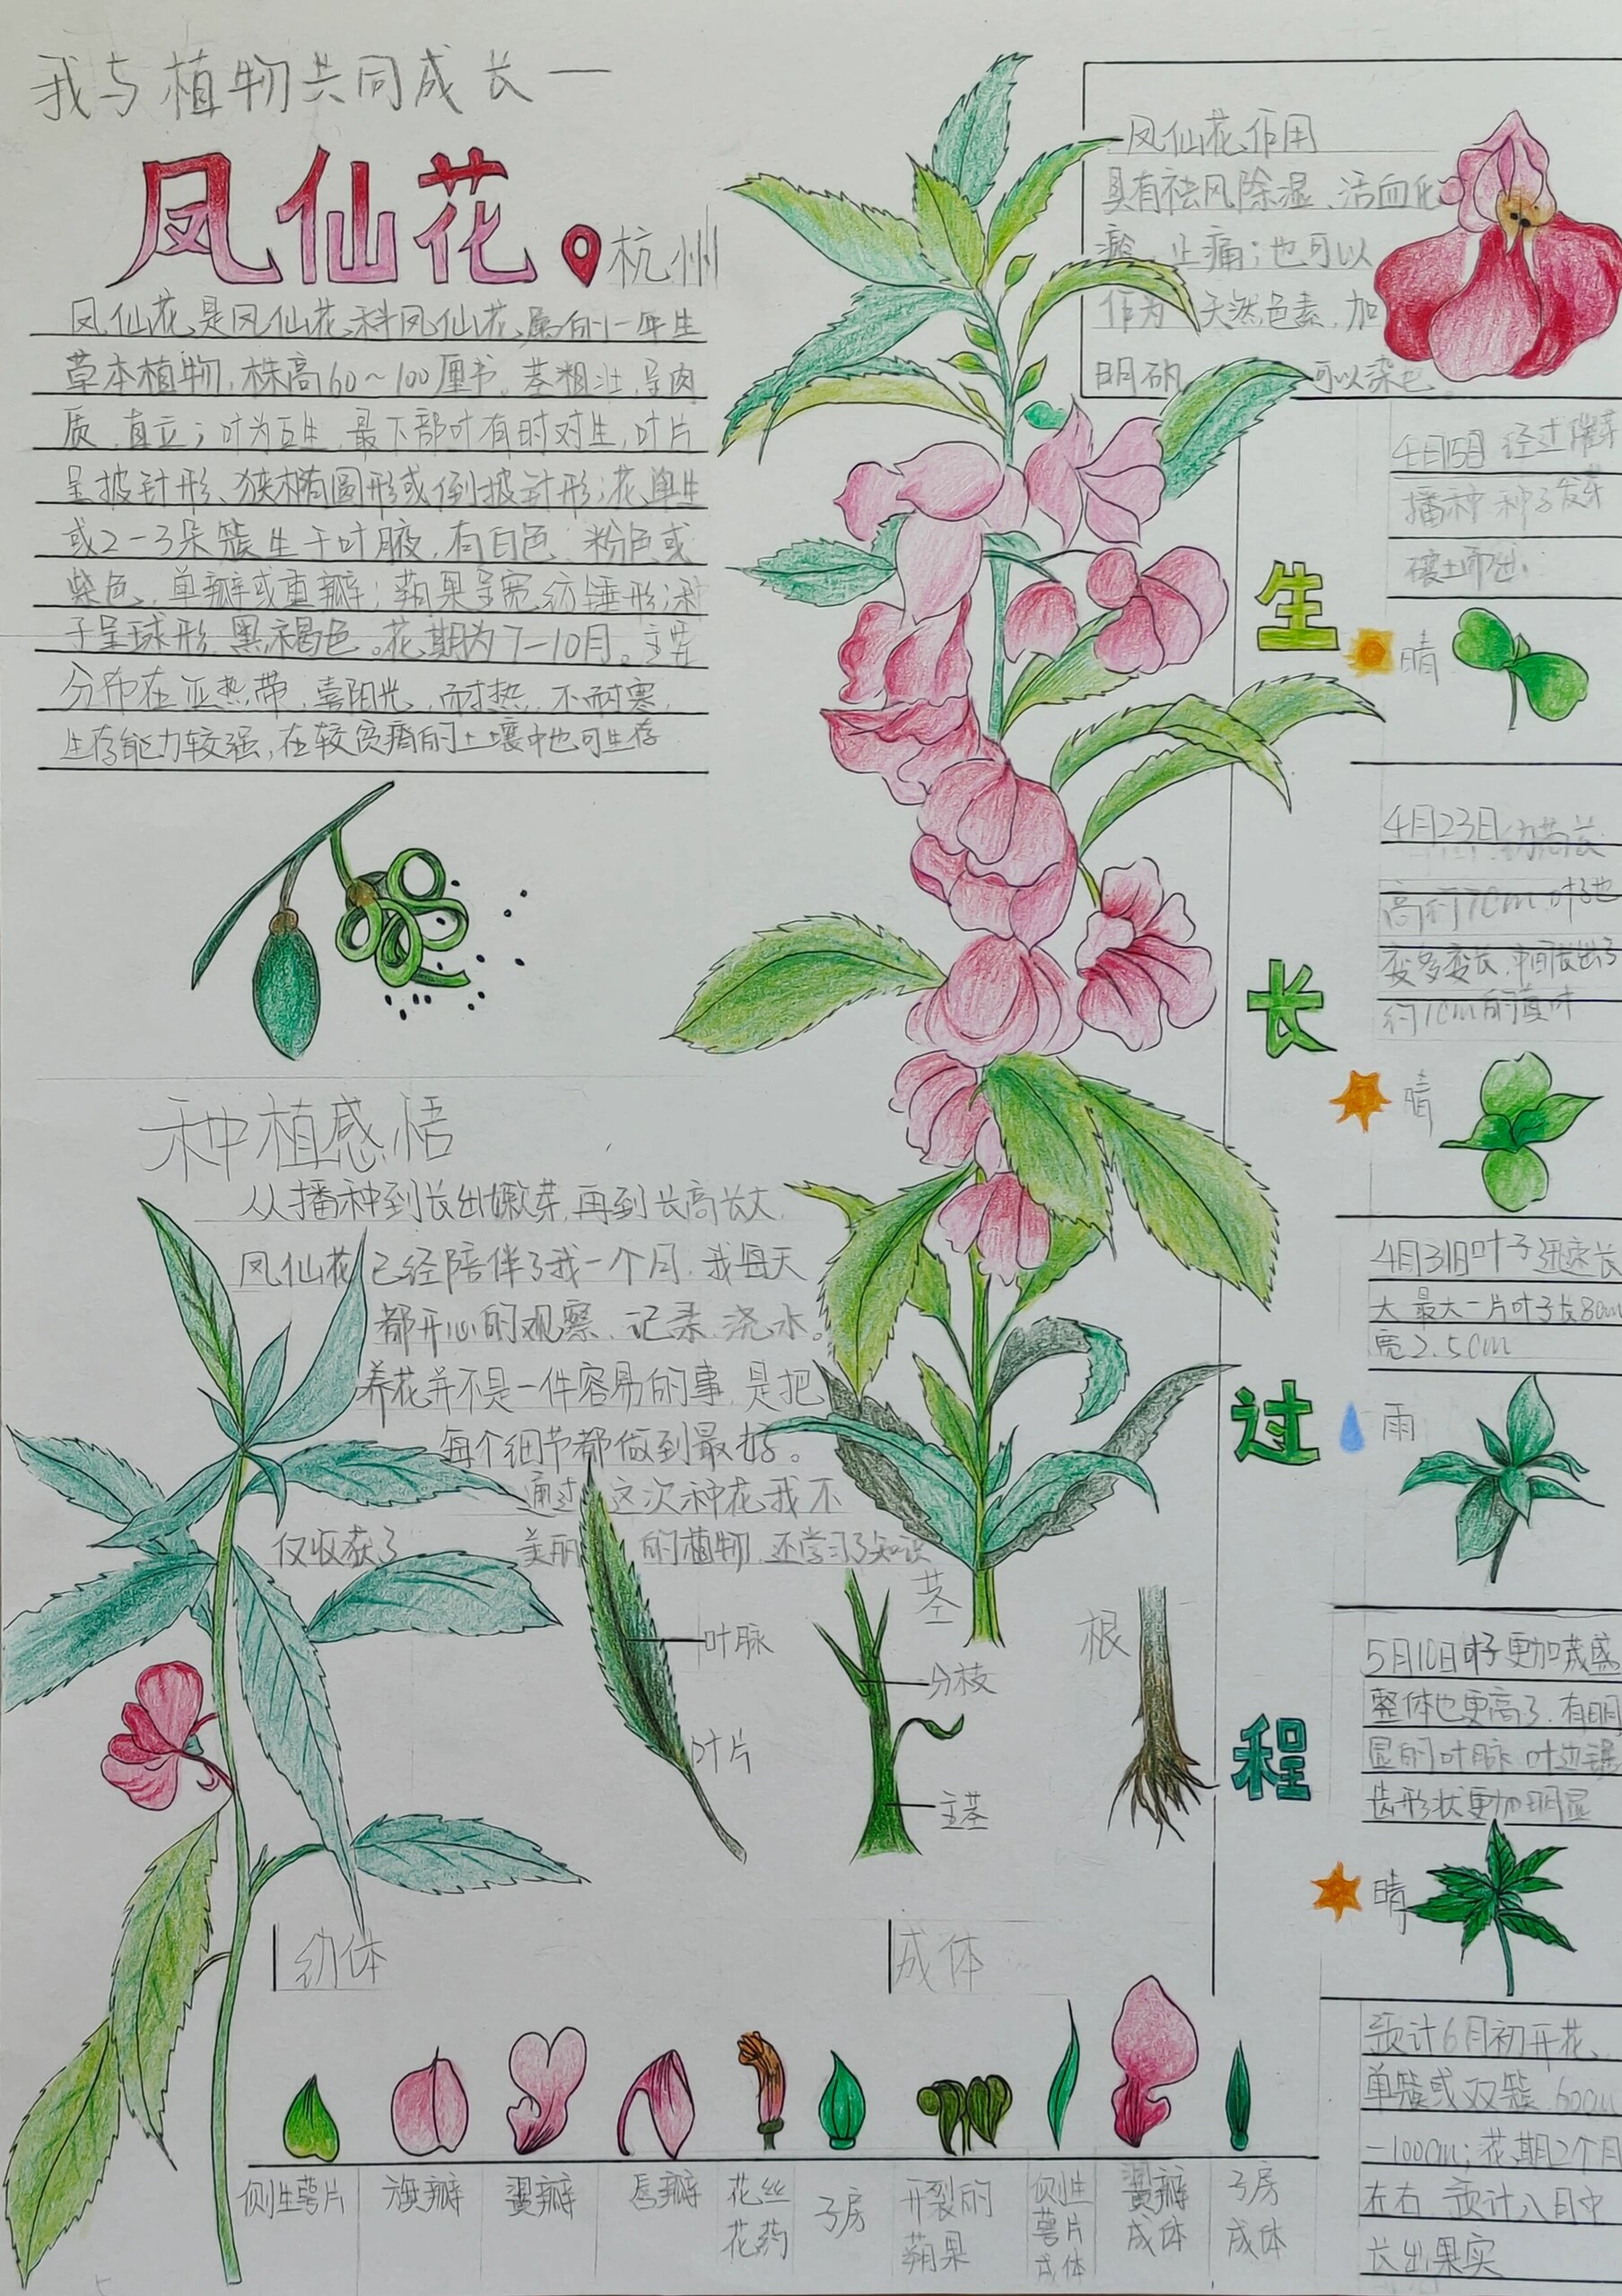 我与植物共同成长一
凤仙花 杭州
凤仙花是凤仙花科凤仙花属的一年生
草本植物,株高60~100厘米。茎粗壮,呈肉
质,直立;叶为互生,最下部叶有时对生,叶片
呈披针形、狭椭圆形或倒披针形;花单生
或2-3朵簇生于叶腋,有白色、粉色或
紫色,单瓣或重瓣;蒴果呈宽纺锤形;种
子呈球形,黑褐色。花期为7-10月。主要
分布在亚热带,喜阳光,而耐热,不耐寒,
生存能力较强,在较贫瘠的土壤中也可生存
种植感悟
从播种到长出嫩芽,再到长高长大,
凤仙花已经陪伴了我一个月,我每天
都开心的观察、记录、浇水。
养花并不是一件容易的事,是把
每个细节都做到最好。
通过这次种花我不
仅收获了美丽的植物,还学习了知识
叶脉
叶片
茎
分枝
主茎
根
幼体
成体
侧生萼片
旗瓣
翼瓣
唇瓣
花丝
花药
子房
开裂的
蒴果
侧生
萼片
成体
翼瓣
成体
子房
成体
凤仙花作用
具有祛风除湿、活血化
瘀、止痛;也可以
作为天然色素,加
明矾可以染色
生
长
过
程
4月15日 经过催芽
播种 种子发芽
破土而出.
晴
4月23日 幼苗长
高约7cm 叶子也
变多变长,中间长出了
约1cm的真叶
晴
4月31日叶子迅速长
大 最大一片叶子长8cm
宽2.5cm
雨
5月10日 叶子更加茂盛
整体也更高了.有明
显的叶脉 叶边锯
齿形状更加明显
晴
预计6月初开花、
单簇或双簇 60cm
-100cm;花期2个月
左右 预计八月中
长出果实